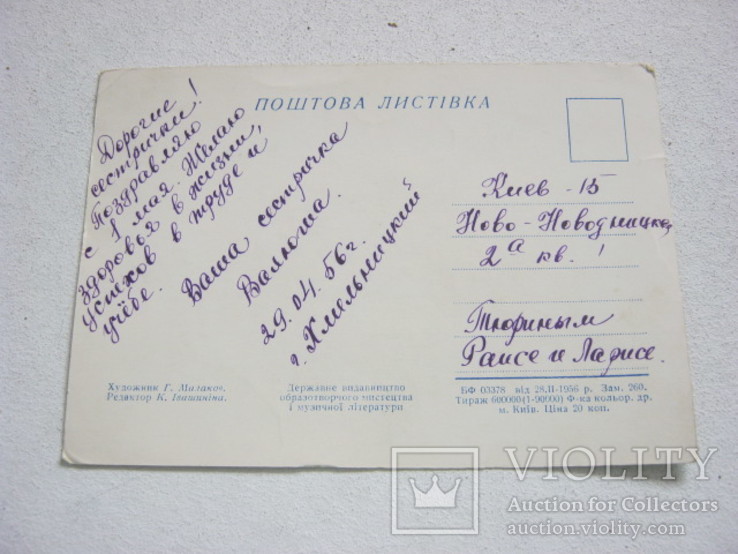 ПОШТОВА ЛИСТІВКА
Дорогие
сестрички!
Поздравляю
с 1 мая. Желаю
здоровья в жизни,
успехов в труде и
учёбе.
Ваша сестричка
Валюша.
29.04.56г.
г. Хмельницкий
Киев - 15
Ново-
2а кв. 1
Тюриным
Раисе и Ларисе.
Художник Г.
Редактор К. Івашиніна.
Державне видавництво
образотворчого мистецтва
і музичної літератури
БФ 03378 від 28.II-1956 р. Зам. 260.
Тираж 600000(1-90000) Ф-ка кольор. др.
м. Київ. Ціна 20 коп.
VIOLITY
Auction for Collectors
auction.violity.com